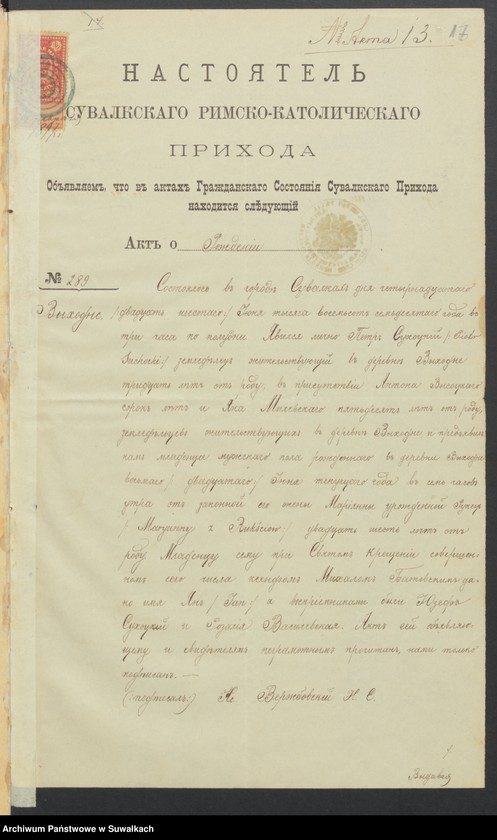 № Акта 13. 17
НАСТОЯТЕЛЬ
СУВАЛКСКАГО РИМСКО-КАТОЛИЧЕСКАГО
ПРИХОДА
Объявляемъ, что въ актахъ Гражданскаго Состоянія Сувалкскаго Прихода
находится слѣдующій
Актъ о Рожденіи
№ 289
Выходне.
Состоялось въ городѣ Сувалкахъ дня четырнадцатаго
/двадцать шестаго/ Іюня тысяча восемьсотъ семьдесятаго года въ
три часа по полудни. Явился лично Петръ Сухоцкій /Piotr
Suchocki/ земледѣлецъ жительствующій въ деревнѣ Выходне
тридцать лѣтъ отъ роду, въ присутствіи Антона Высоцкаго
сорокъ лѣтъ и Яна Милевскаго пятьдесятъ лѣтъ отъ роду,
земледѣльцевъ жительствующихъ въ деревнѣ Выходне, и предъявилъ
намъ младенца мужескаго пола рожденнаго въ деревнѣ Выходне
/двадцатаго/ Іюня текущаго года въ семь часовъ
утра отъ законной его жены Маріанны урожденной
/Maryanny z / двадцать шесть лѣтъ отъ
роду. Младенцу сему при Святомъ Крещеніи совершон-
номъ сего числа ксендзомъ Михаломъ да-
но имя Янъ /Jan/ а воспріемниками были Юзефъ
Сухоцкій и Василевская. Актъ сей объявляю-
щему и свидѣтелямъ неграмотнымъ прочитанъ, нами только
подписанъ. —
(:подписалъ:) Кс Вержбовскій Н. С.
Archiwum Państwowe w Suwałkach